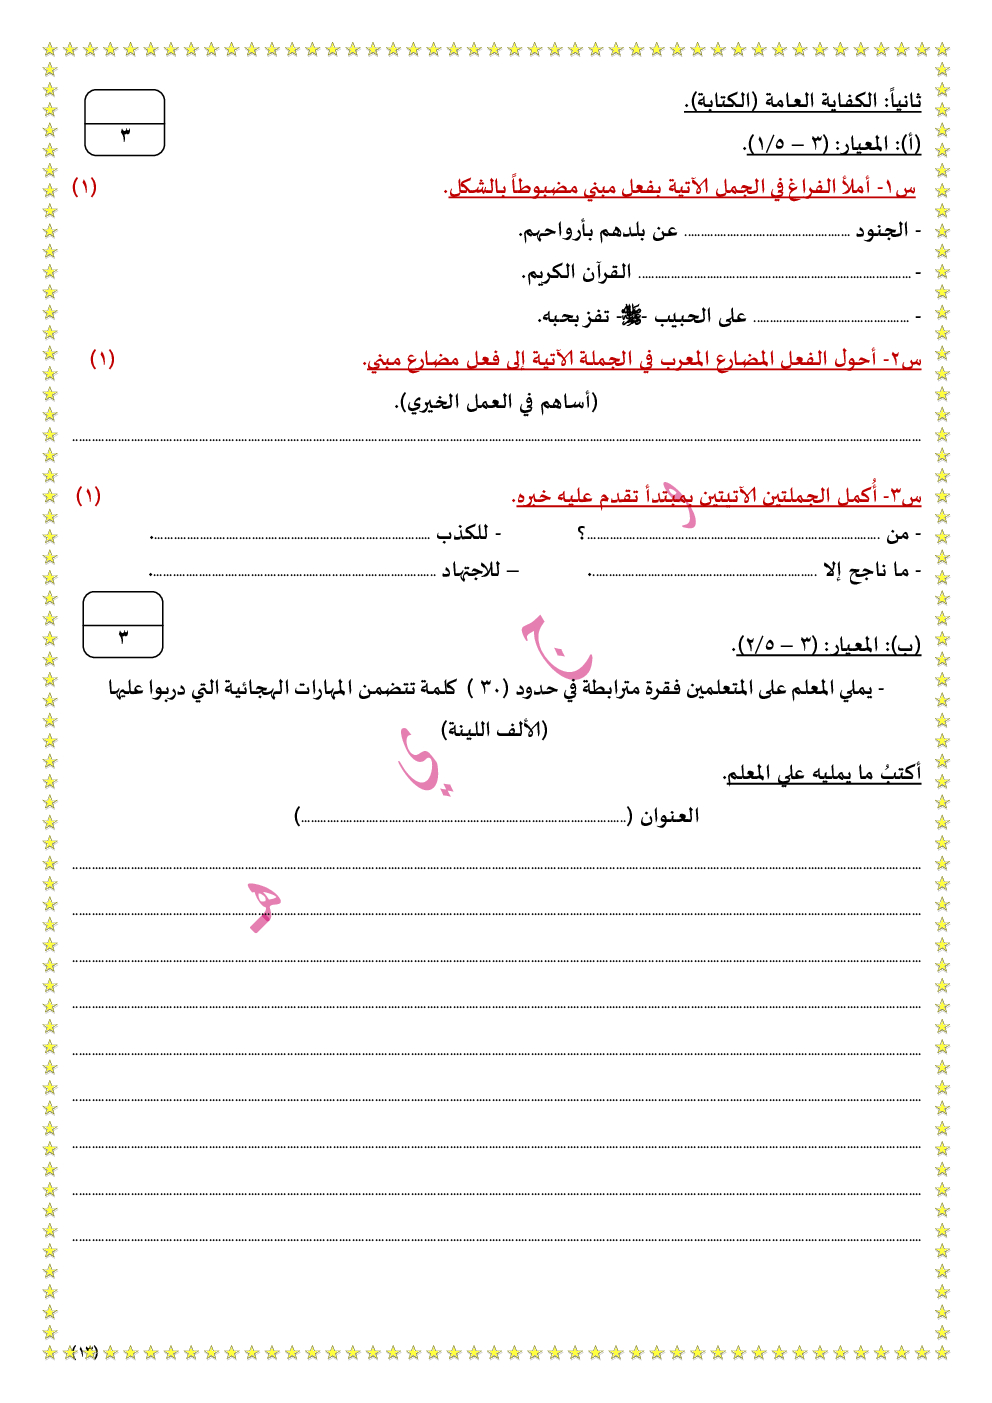 ثانياً: الكفاية العامة (الكتابة).
٣
(أ): المعيار: (٣ – ١/٥).
س١- أملأ الفراغ في الجمل الآتية بفعل مبني مضبوطاً بالشكل. (١)
- الجنود .................................................. عن بلدهم بأرواحهم.
- .................................................................................. القرآن الكريم.
- ............................................... على الحبيب -ﷺ- تفز بحبه.
س٢- أحول الفعل المضارع المعرب في الجملة الآتية إلى فعل مضارع مبني. (١)
(أساهم في العمل الخيري).
س٣- أُكمل الجملتين الآتيتين بمبتدأ تقدم عليه خبره. (١)
- من ........................................................................................؟ - للكذب ....................................................................................
- ما ناجح إلا .................................................................... – للاجتهاد ......................................................................................
٣
(ب): المعيار: (٣ – ٢/٥).
- يملي المعلم على المتعلمين فقرة مترابطة في حدود (٣٠ ) كلمة تتضمن المهارات الهجائية التي دربوا عليها
(الألف اللينة)
أكتبُ ما يمليه علي المعلم.
العنوان (..................................................................................................)
(١٣)